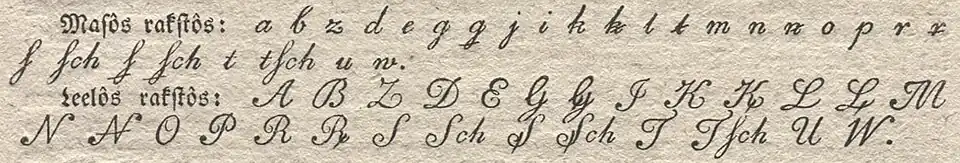 Maſôs rakſtôs: a b z d e g ꞡ j i k ꞣ l ł m n ꞥ o p r ꞧ
ſ ſch ẜ ẜch t tſch u w.
Leelôs rakſtôs: A B Z D E G Ꞡ J K Ꞣ L Ł M
N Ꞥ O P R Ꞧ S Sch Ꞩ Ꞩch T Tſch U W.